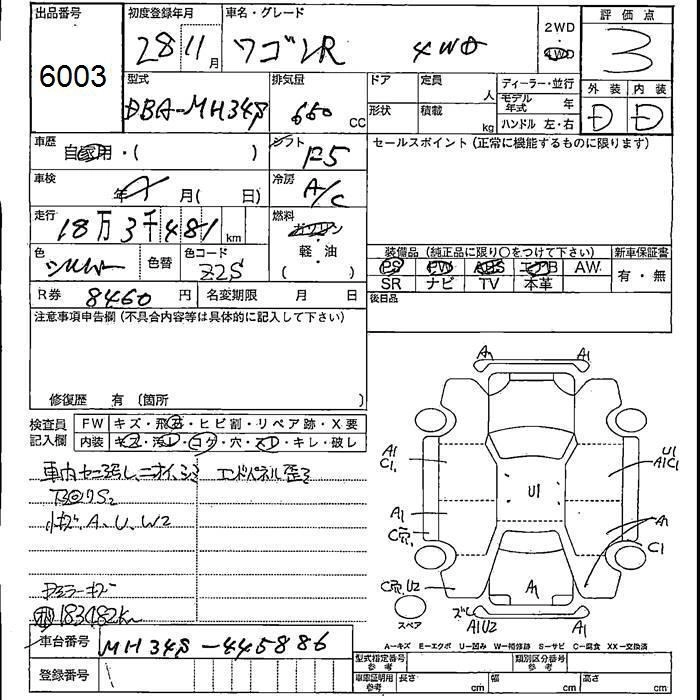 出品番号 初度登録年月 車名・グレード 2WD 評価点
6003 28 11月 ワゴンR 4WD 4WD 3
型式 排気量 ドア 定員 人 ディーラー・並行 外装 内装
DBA-MH34S 650 CC 形状 積載 kg モデル年式 年 D D
ハンドル 左・右
車歴 自家用・( ) シフト F5 セールスポイント(正常に機能するものに限ります)
車検 年 月( 日) 冷房 A/C
走行 18万3千481km 燃料 ガソリン・軽・油( )
色 シルバー 色替 色コード Z2S 装備品(純正品に限り○をつけて下さい) 新車保証書
PS PW ABS エアB AW 有・無
R券 8460円 名変期限 月 日 SR ナビ TV 本革
注意事項申告欄(不具合内容等は具体的に記入して下さい) 後日品
修復歴 有(箇所 )
検査員記入欄 FW キズ・飛石・ヒビ割・リペア跡・X要
内装 キズ・汚れ・コゲ・穴・スレ・キレ・破レ
車内 ニオイ、シミ エンドパネル歪ミ
下回りS2
小キズ、A、U、W2
183482km
車台番号 MH34S-445886
登録番号
A1 A1
A1 C1 U1 A1C1
U1
A1 A1
C1
U2 A1
スペア ズレ A1U2 A1
A-キズ E-エクボ U-凹み W-補修跡 S-サビ C-腐食 XX-交換済
型式指定番号 参考 類別区分番号 参考
車庫証明用 参考 長さ cm 幅 cm 高さ cm